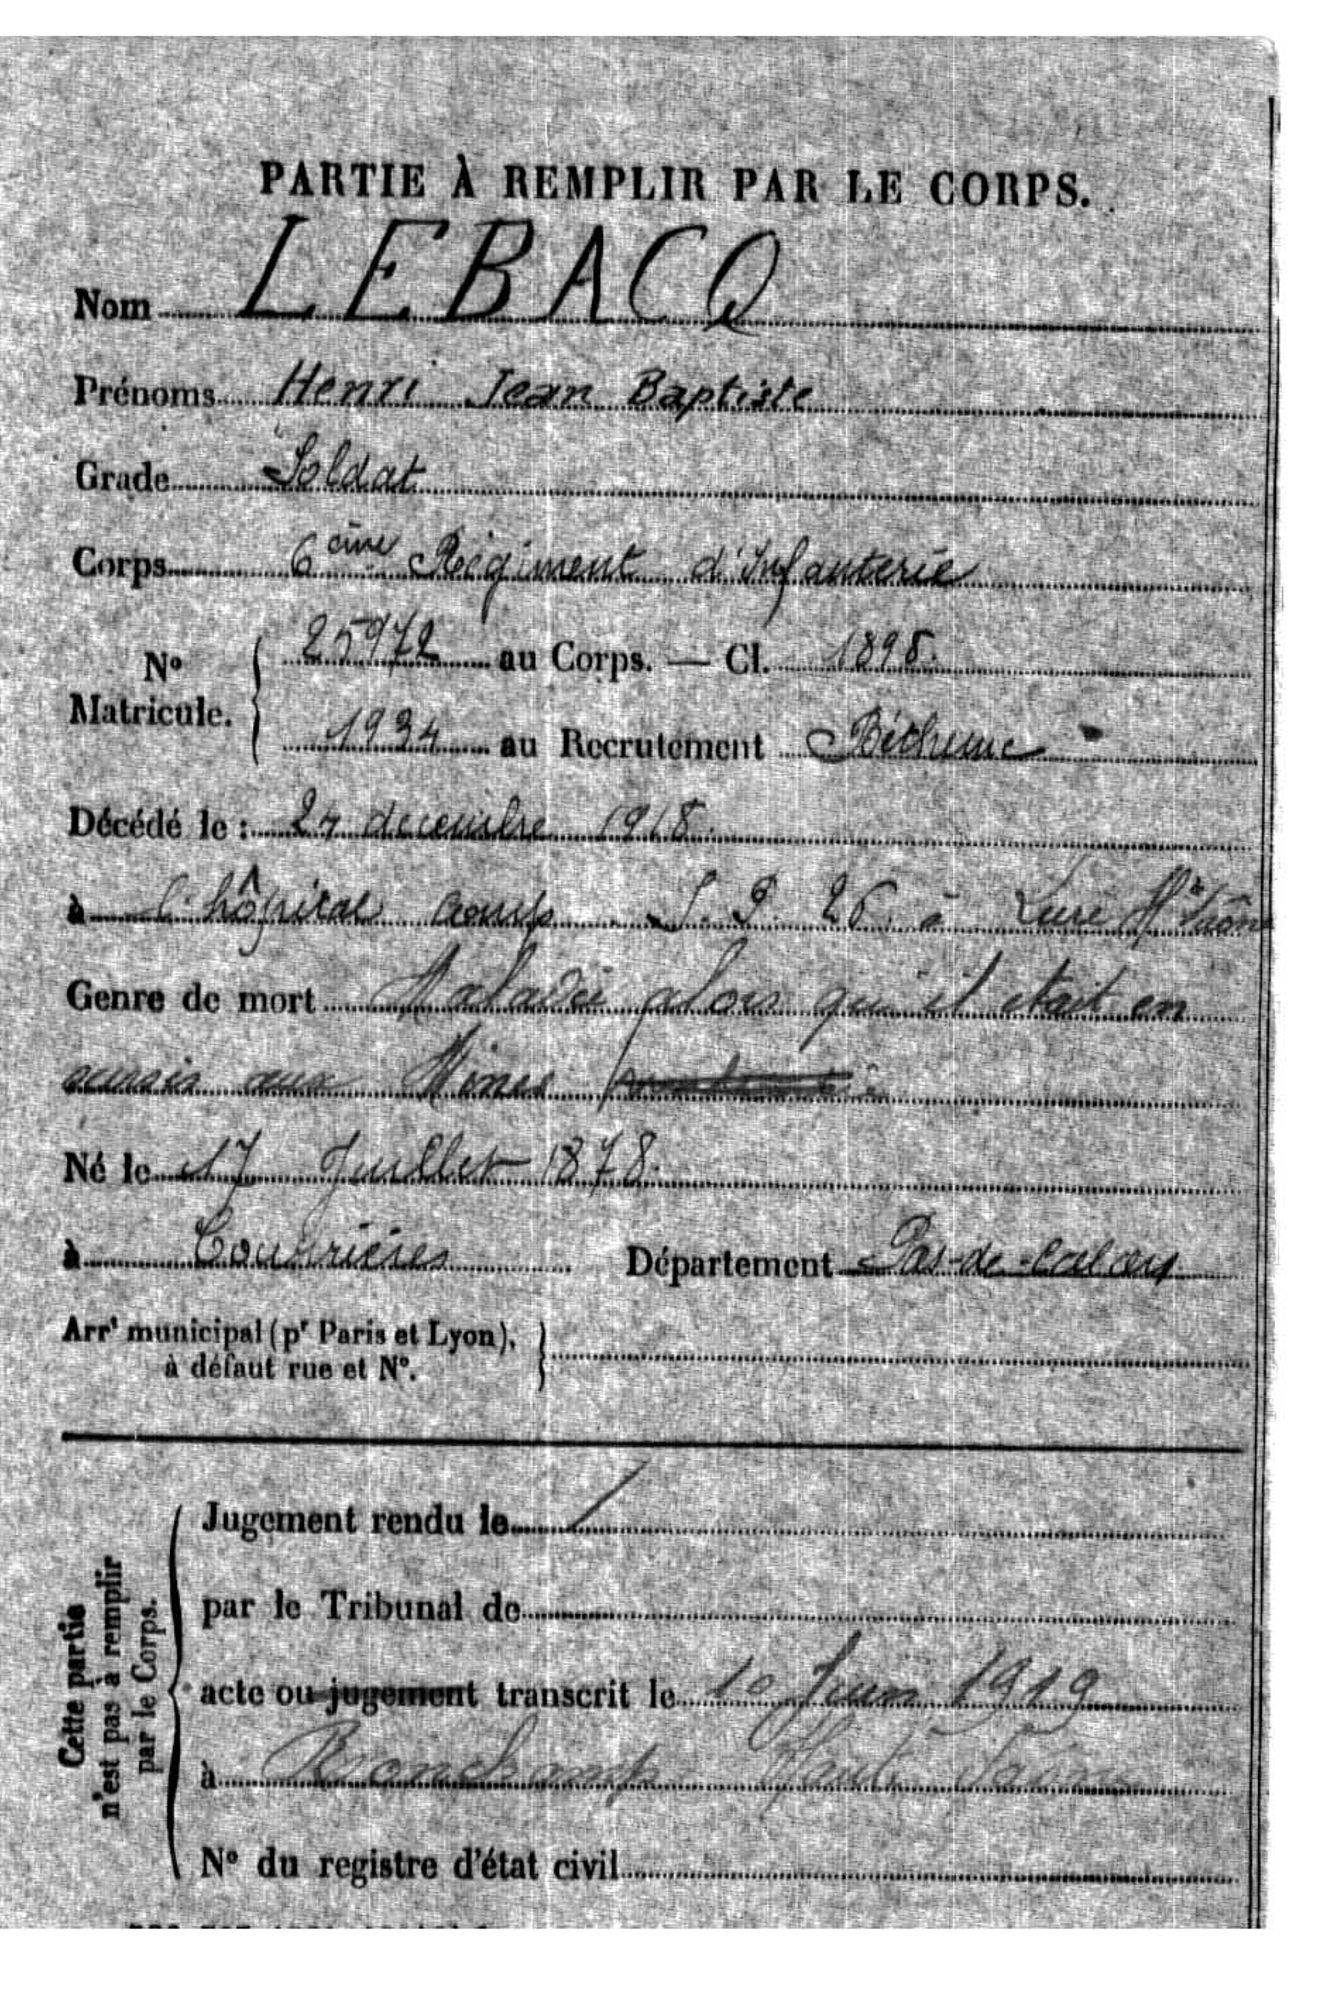 PARTIE À REMPLIR PAR LE CORPS.
Nom LEBACQ
Prénoms Henri Jean Baptiste
Grade Soldat
Corps 6ème Régiment d'Infanterie
N° Matricule. 25972 au Corps. — Cl. 1898.
1934 au Recrutement Béthune
Décédé le : 27 décembre 1918.
à l'hôpital comp. 26 à Lure Hte Saône
Genre de mort Maladie alors qu'il était en
sursis aux Mines
Né le 17 Juillet 1878.
à Courrières Département Pas-de-Calais
Arrt municipal (pr Paris et Lyon), à défaut rue et N°.
Cette partie n'est pas à remplir par le Corps.
Jugement rendu le
par le Tribunal de
acte ou jugement transcrit le 10 Juin 1919
à Ronchamp Haute Saône
N° du registre d'état civil